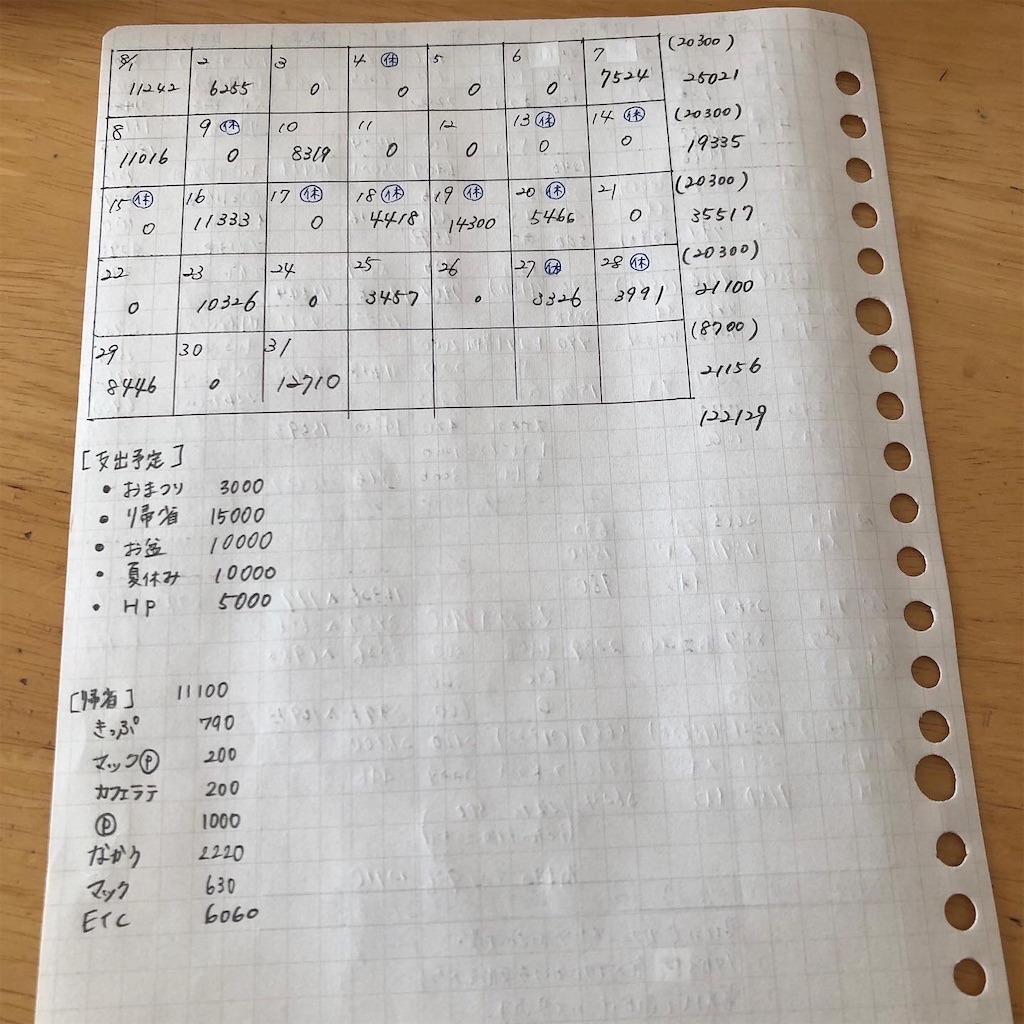 8/1 2 3 4 ㊡ 5 6 7 (20300)
11242 6255 0 0 0 0 7524 25021
8 9 ㊡ 10 11 12 13 ㊡ 14 ㊡ (20300)
11016 0 8319 0 0 0 0 19335
15 ㊡ 16 17 ㊡ 18 ㊡ 19 ㊡ 20 ㊡ 21 (20300)
0 11333 0 4418 14300 5466 0 35517
22 23 24 25 26 27 ㊡ 28 ㊡ (20300)
0 10326 0 3457 0 3326 3991 21100
29 30 31 (8700)
8446 0 12710 21156
122129
[支出予定]
・おまつり 3000
・帰省 15000
・お盆 10000
・夏休み 10000
・HP 5000
[帰省] 11100
きっぷ 790
マックⓟ 200
カフェラテ 200
ⓟ 1000
なかう 2220
マック 630
ETC 6060